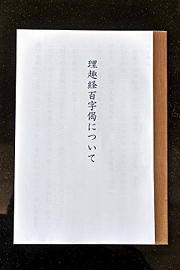 理趣経百字偈について